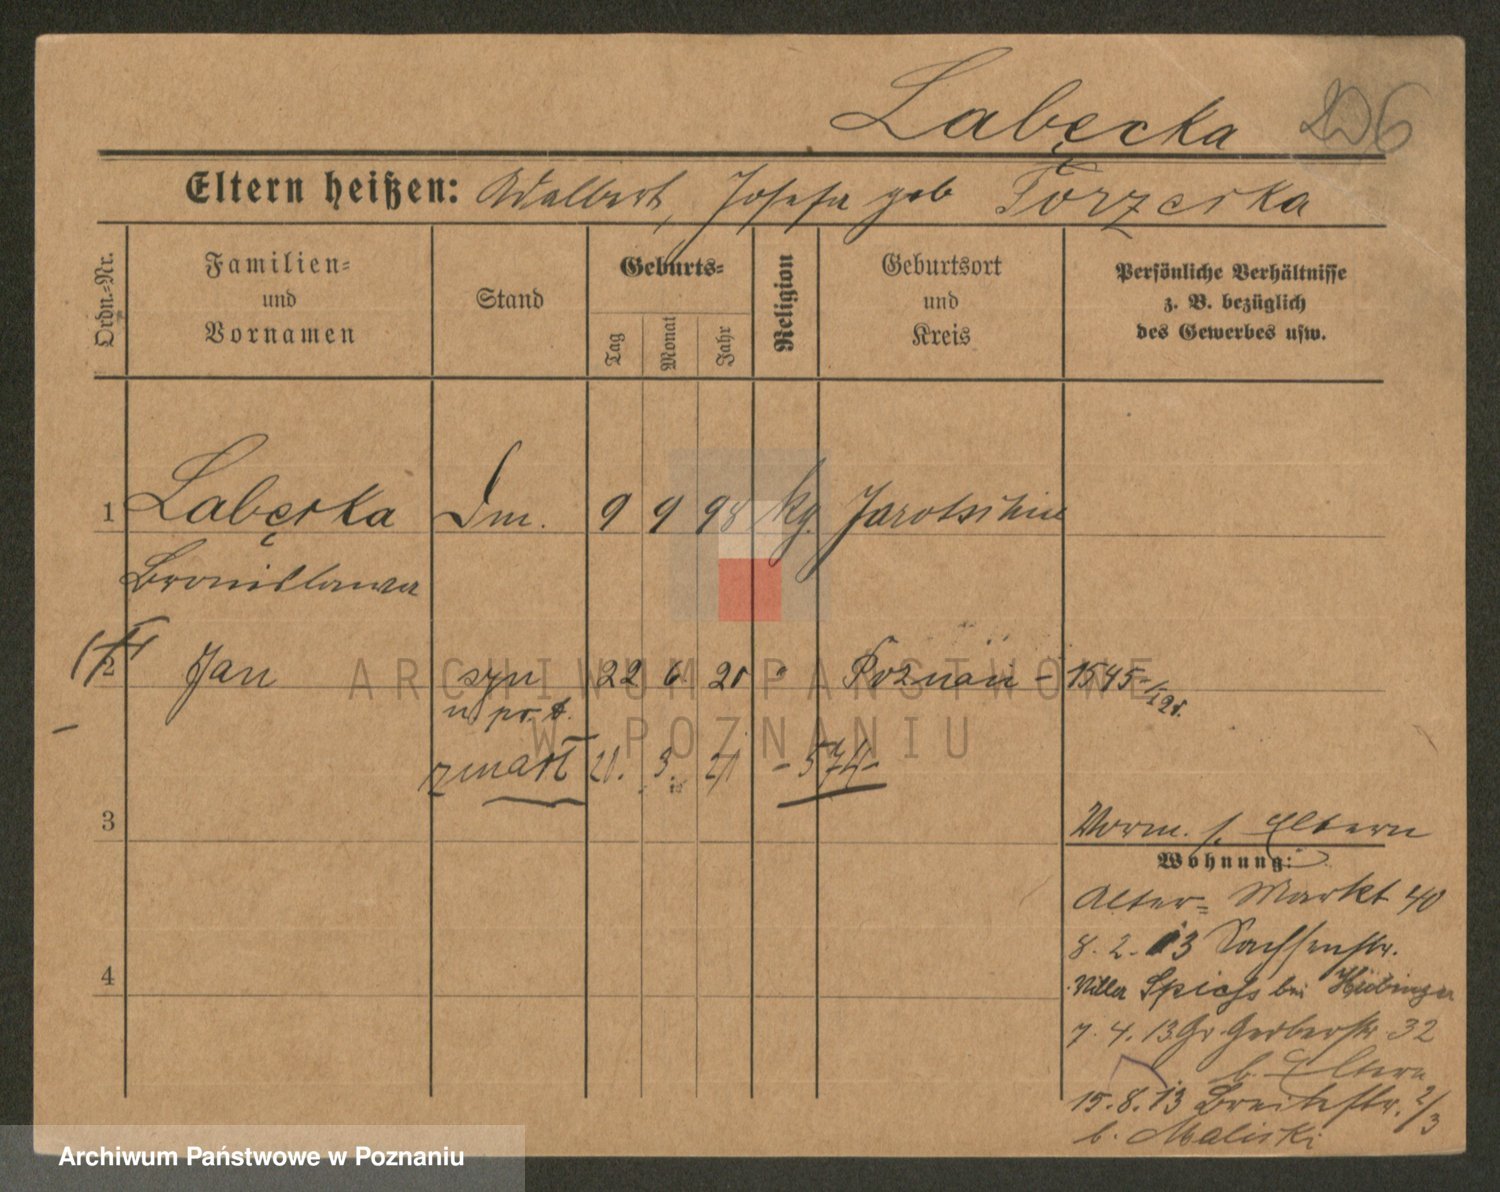 Labęcka 206
Eltern heißen: Adalbert, Josefa geb Tórzecka
Ordn.-Nr.
Familien- und Vornamen
Stand
Geburts-
Tag
Monat
Jahr
Religion
Geburtsort und Kreis
Persönliche Verhältnisse z. B. bezüglich des Gewerbes usw.
1 Labęcka Dm. 9 9 98 kg. Jarotschin
Bronisława
2 Jan syn 22 6 21 " Poznań - 1545-/21.
zmarł 21. 3. 21 - 574-
3
Vorm. s. Eltern
Wohnung:
Alter- Markt 40
8. 2. 13 Sachsenstr.
Villa Spiess bei
7. 4. 13 Gr. Gerberstr. 32
b. Eltern
15. 8. 13 Breitestr. 2/3
b. Maliski
4
ARCHIWUM PAŃSTWOWE
W POZNANIU
Archiwum Państwowe w Poznaniu